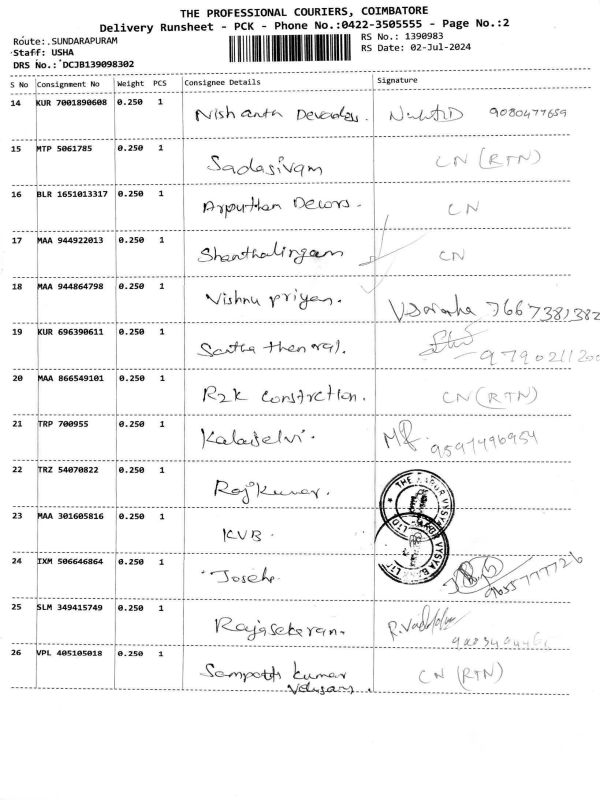 THE PROFESSIONAL COURIERS, COIMBATORE
Delivery Runsheet - PCK - Phone No.:0422-3505555 - Page No.:2
Route:.SUNDARAPURAM
Staff: USHA
DRS No.:DCJB139098302
RS No.: 1390983
RS Date: 02-Jul-2024
S No Consignment No Weight PCS Consignee Details Signature
14 KUR 7001890608 0.250 1 Nishanta Devadas. 9080477659
15 MTP 5061785 0.250 1 Sadasivam CN (RTN)
16 BLR 1651013317 0.250 1 Arputham Decors. CN
17 MAA 944922013 0.250 1 Shanthalingam CN
18 MAA 944864798 0.250 1 Vishnu priyan. 7667381382
19 KUR 696390611 0.250 1 Santha thenral.
20 MAA 866549101 0.250 1 R2K constrction. CN (RTN)
21 TRP 700955 0.250 1 Kalaiselvi. 9597496954
22 TRZ 54070822 0.250 1 Rajkumar.
23 MAA 301605816 0.250 1 KVB.
24 IXM 506646864 0.250 1 9655777726
25 SLM 349415749 0.250 1 Rajasekaran.
26 VPL 405105018 0.250 1 Sampath kumar CN (RTN)